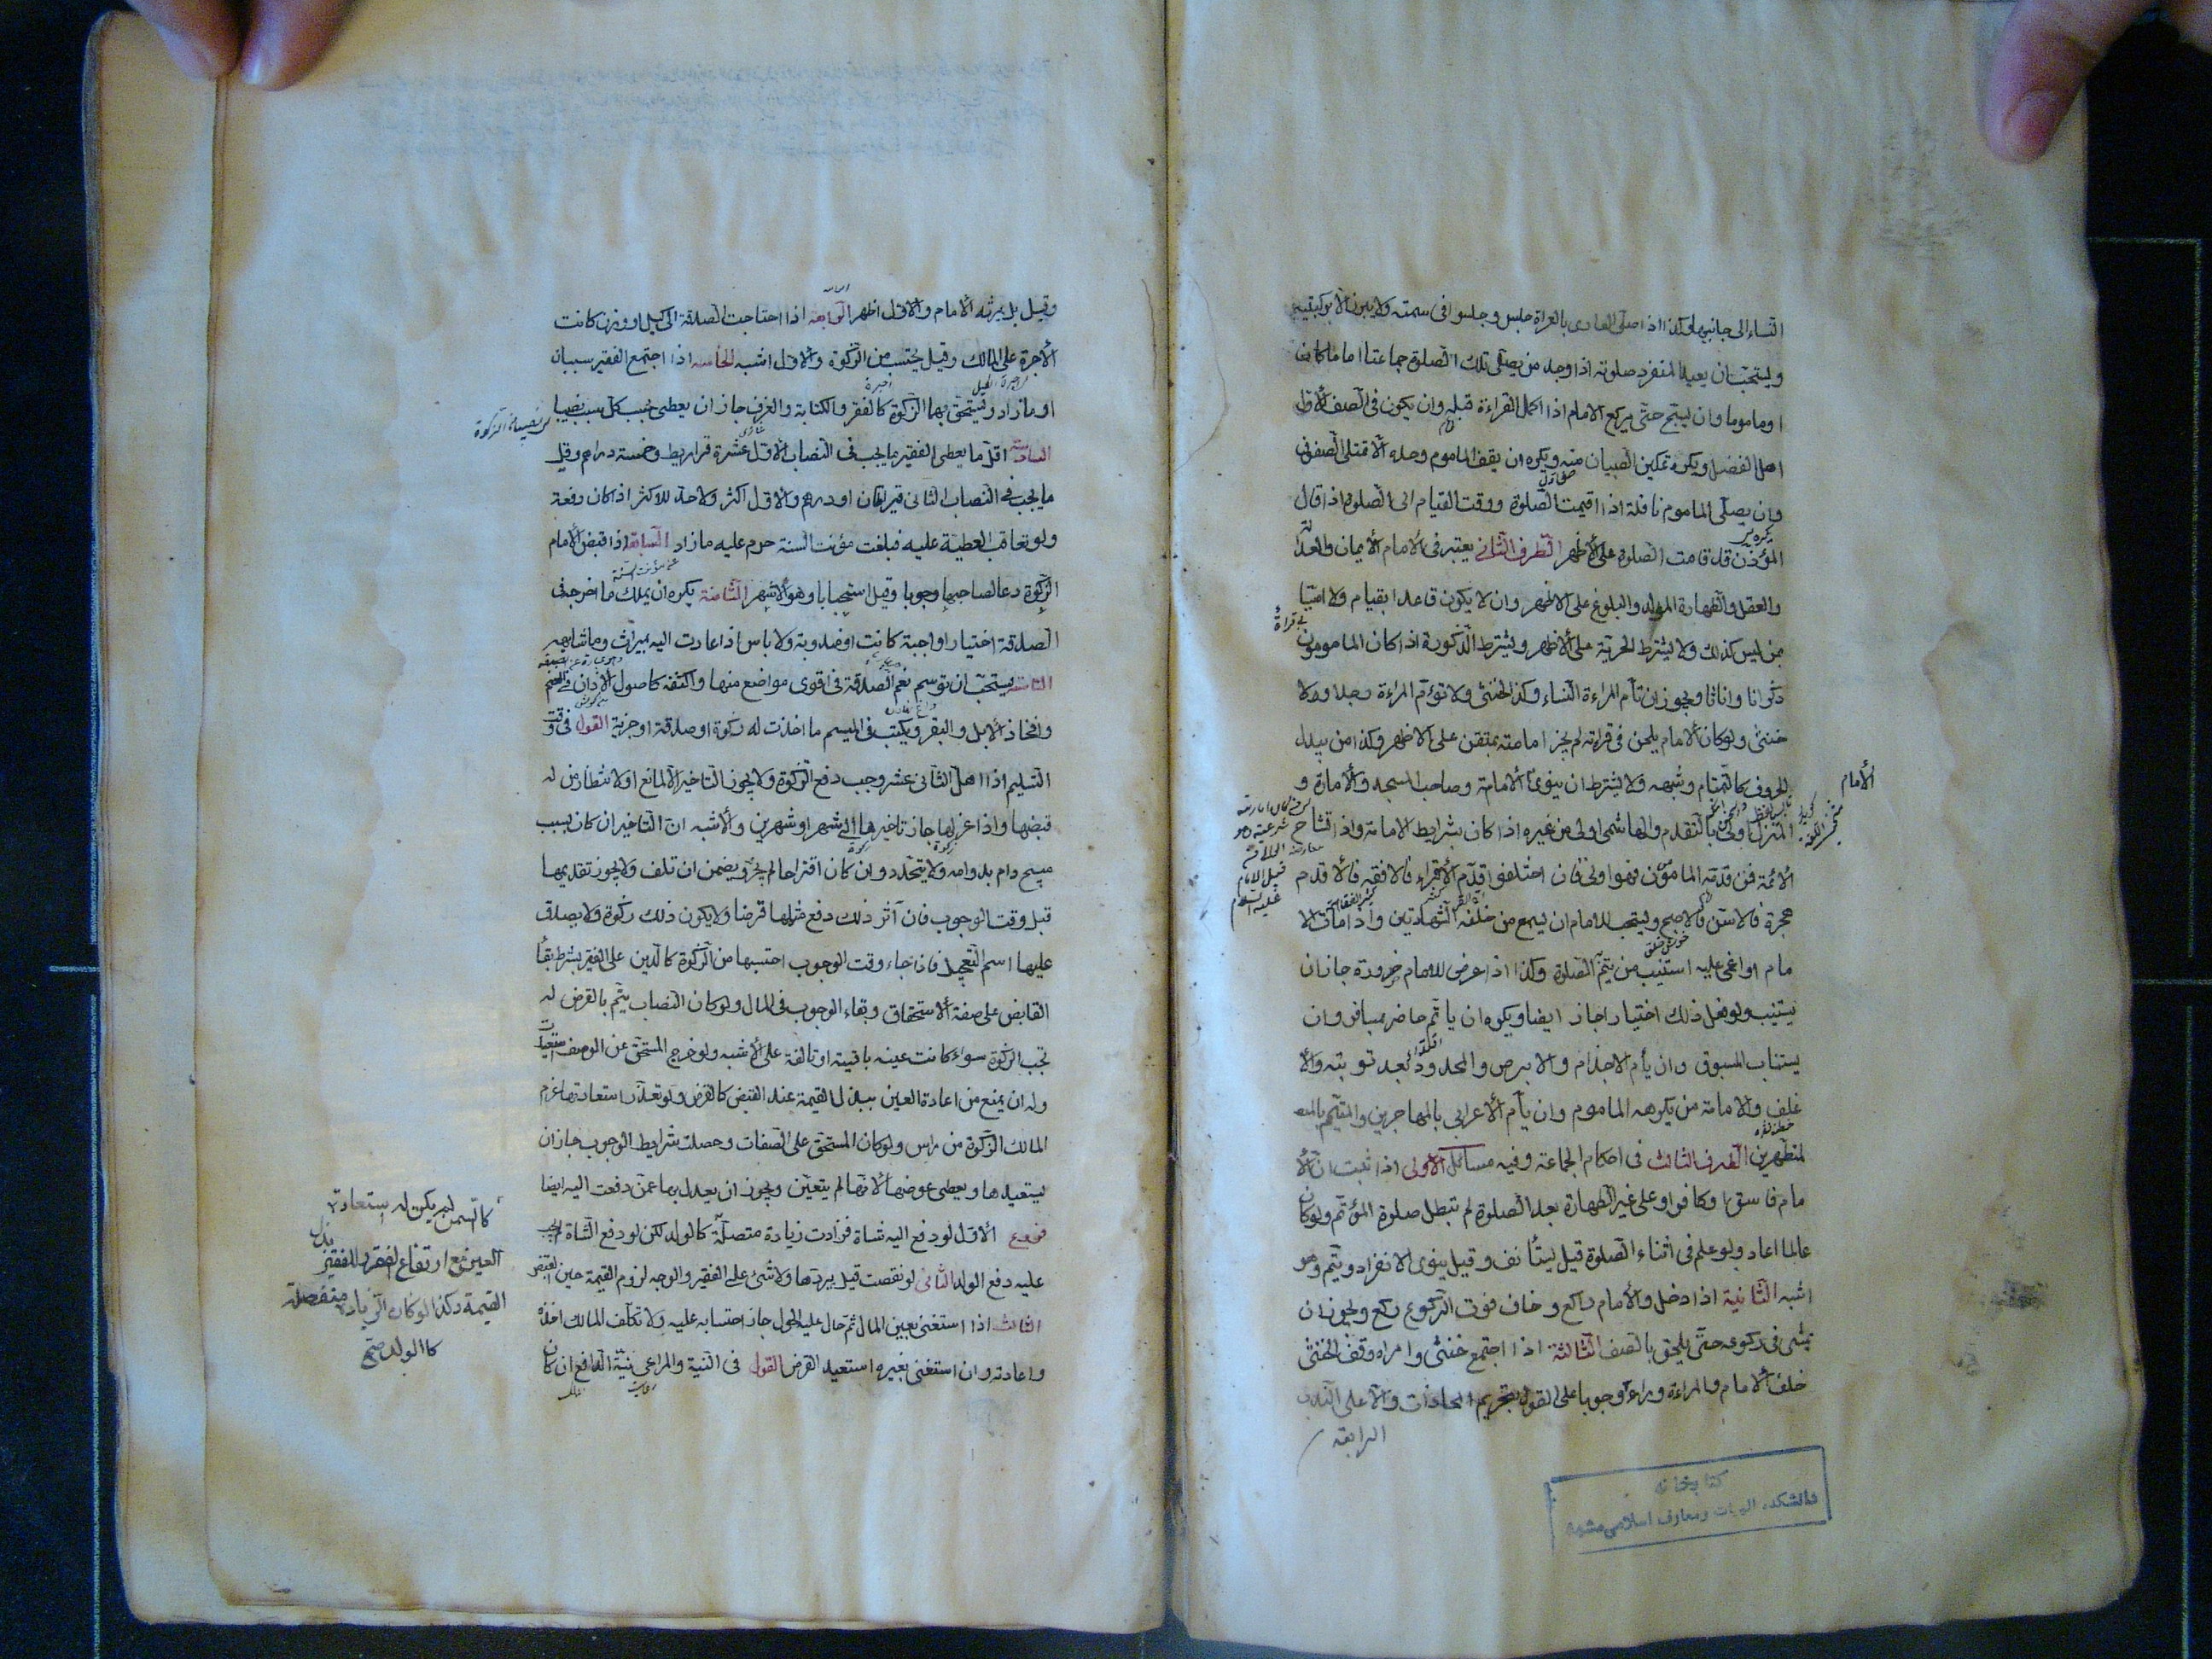 النساء الى جانبها وكذا اذا صلى العارى بالعراة جلس وجلسوا فى سمته ولا يبرز الا بركبتيه
ويستحب ان يعيد المنفرد صلوته اذا وجد من يصلى تلك الصلوة جماعتا اماما كان
او ماموما وان يسبح حتى يركع الامام اذا اكمل القراءة قبله وان يكون فى الصف الاول
اهل الفضل ويكره تمكين الصبيان منه ويكره ان يقف الماموم وحده الا
وان يصلى الماموم نافلة اذا اقيمت الصلوة ووقت القيام الى الصلوة اذا قال
المؤذن قد قامت الصلوة على الاظهر الطرف الثانى يعتبر فى الامام الايمان والعدالة
والعقل والطهارة المولد والبلوغ على الاظهر وان لا يكون قاعدا بقيام ولا اميا
بمن ليس كذلك ولا يشترط الحرية على الاظهر ويشترط الذكورة اذا كان المامومون
ذكرانا واناثا ويجوز ان تأم المراءة النساء وكذا الخنثى ولا تؤم المراءة رجلا ولا
خنثى ولو كان الامام يلحن فى قراءته لم يجز امامته بمتقن على الاظهر وكذا من يبدل
الحروف كالتمتام وشبهه ولا يشترط ان ينوى الامامة وصاحب المسجد والامارة و
المنزل اولى بالتقدم والهاشمى اولى من غيره اذا كان بشرايط الامامة واذا تشاح
الائمة فمن قدمه المامومون فهو اولى فان اختلفوا قدم الاقراء فالافقه فالاقدم
هجرة فالاسن فالاصبح ويستحب للامام ان يسمع من خلفه الشهادتين واذا مات الا
مام او اغمى عليه استنيب من يتم الصلوة وكذا اذا عرض للامام ضرورة جاز ان
يستنيب ولو فعل ذلك اختيارا جاز ايضا ويكره ان ياتم حاضر بمسافر وان
يستناب المسبوق وان يأم الاجذام والابرص والمحدود بعد توبته والا
غلف والامامة من يكرهه الماموم وان يأم الاعرابى بالمهاجرين والمتيمم بالمت
لمتطهرين الطرف الثالث فى احكام الجماعة وفيه مسائل الاولى اذا ثبت ان الا
مام فاسق او كافر او على غير الطهارة بعد الصلوة لم تبطل صلوة المؤتم ولو كان
عالما اعاد ولو علم فى اثناء الصلوة قيل يستأنف وقيل ينوى الانفراد ويتم وهو
اشبه الثانية اذا دخل والامام راكع وخاف فوت الركوع ركع ويجوز ان
يمشى فى ركوعه حتى يلحق بالصف الثالثة اذا اجتمع خنثى وامراه وقف الخنثى
خلف الامام والمراءة وراءه وجوبا على القول بتحريم المحاذات والا على الندب
الرابعة
الامام
فى قراءة
قبل الامام
عليه السلام
كتابخانه
دانشكده الهيات و معارف اسلامى مشهد
وقيل بل يمرثه الامام والاول اظهر الرابعة اذا احتاجت الصدقة الى كيل او وزن كانت
الاجرة على المالك وقيل يحتسب من الزكوة والاول اشبه الخامسة اذا اجتمع الفقير سببان
او مازاد ويستحق بهما الزكوة كالفقر والكتابة والغرم جاز ان يعطى بحسب كل سبب نصيبا
السادسة اقل ما يعطى الفقير ما يجب فى النصاب الاول عشرة قراريط وخمسة دراهم وقيل
ما يجب فى النصاب الثانى قيراطان او درهم والاول اكثر ولا حد للاكثر اذا كان دفعة
ولو تعاقب العطية عليه فبلغت مؤنت السنة حرم عليه مازاد السابعة اذا قبض الامام
الزكوة دعا لصاحبها وجوبا وقيل استحبابا وهو الاشهر الثامنة يكره ان يملك ما اخرجه فى
الصدقة اختيارا واجبة كانت او مندوبة ولا باس اذا عادت اليه بميراث وما شابهه
التاسعة يستحب ان توسم نعم الصدقة فى اقوى مواضع منها واكثفه كاصول الاذان فى الغنم
وافخاذ الابل والبقر ويكتب فى الميسم ما اخذت له زكوة او صدقة او جزية القول فى وقت
التسليم اذا اهل الثانى عشر وجب دفع الزكوة ولا يجوز التاخير الا لمانع او لانتظار من له
قبضها واذا عزلها جاز تاخيرها الى شهر او شهرين والاشبه ان التاخير ان كان بسبب
مبيح دام بدوامه ولا يتحدد وان كان اقتراحا لم يجز ويضمن ان تلف ولا يجوز تقديمها
قبل وقت الوجوب فان آثر ذلك دفع مثلها قرضا ولا يكون ذلك زكوة ولا يصدق
عليها اسم التعجيل فاذا جاء وقت الوجوب احتسبها من الزكوة كالدين على الفقير بشرط بقاء
القابض على صفة الاستحقاق وبقاء الوجوب فى المال ولو كان النصاب يتم بالقرض لم
تجب الزكوة سواء كانت عينه باقية او تالفة على الاشبه ولو خرج المستحق عن الوصف استعيدت
وله ان يمنع من اعادة العين ببذل القيمة عند القبض كالقرض ولو تعذر استعادتها غرم
المالك الزكوة من راس ولو كان المستحق على الصفات وحصلت شرايط الوجوب جاز ان
يستعيدها ويعطى عوضها لانها لم يتعين ويجوز ان يعدل بها عمن دفعت اليه ايضا
فروع الاول لو دفع اليه شاة فزادت زيادة متصلة كالولد لكن لو دفع الشاة لم يجب
عليه دفع الولد الثانى لو نقصت قيل يردها ولا شئ على الفقير والوجه لزوم القيمة حين القبض
الثالث اذا استغنى بعين المال ثم حال عليه الحول جاز احتسابه عليه ولا تكلف المالك اخذه
واعادته وان استغنى بغيره استعيد القرض القول فى النية والمراعى نية الدافع ان كان
كالسمن لم يكن له استعادة
العين مع ارتفاع الفقر وللفقير بذل
القيمة وكذا لو كان الزيادة منفصلة
كالولد صح